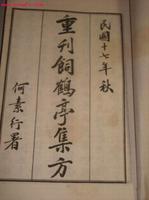 民國十七年秋
重刊飼鶴亭集方
何素行署